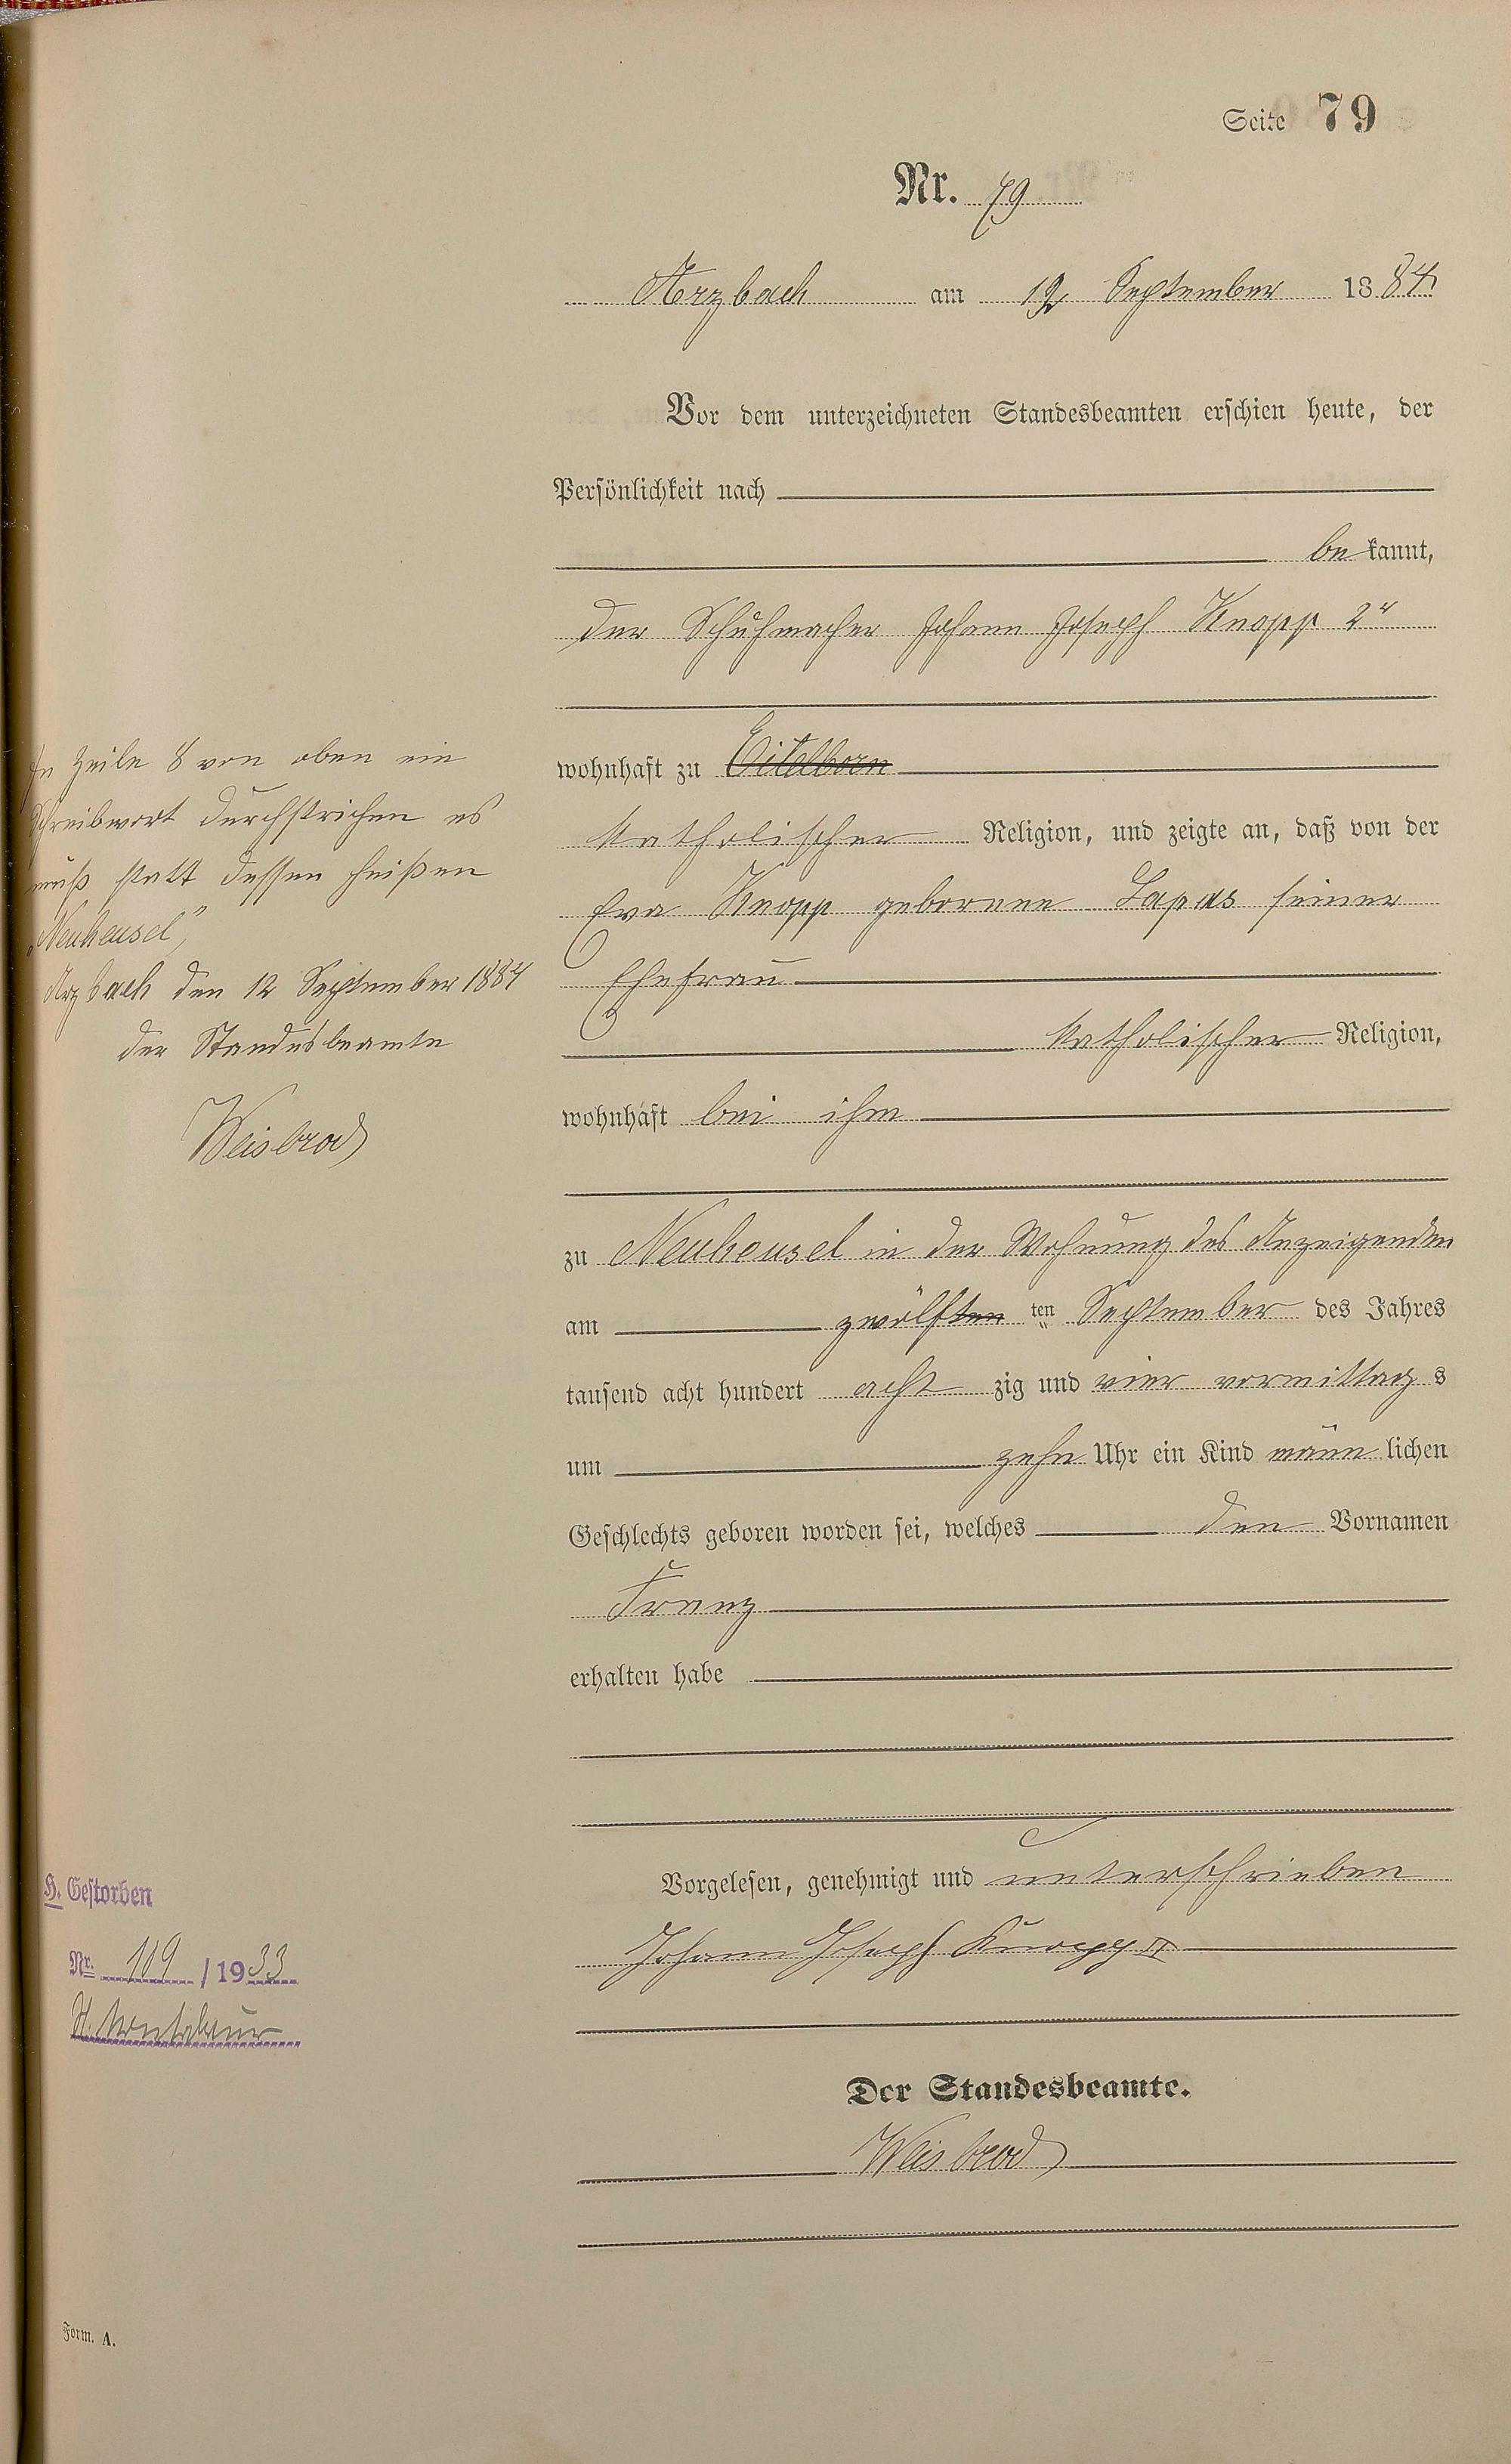 Seite 79
Nr. 79
Arzbach am 12 September 1884
Vor dem unterzeichneten Standesbeamten erschien heute, der
Persönlichkeit nach
bekannt,
der Schuhmacher Johann Joseph Knopp 2r
wohnhaft zu Eitelborn
katholischer Religion, und zeigte an, daß von der
Eva Knopp geborenen seiner
Ehefrau
katholischer Religion,
wohnhaft bei ihm
zu Neuheusel in der Wohnung des Anzeigenden
am zwölften ten September des Jahres
tausend acht hundert acht zig und vier vormittags
um zehn Uhr ein Kind männlichen
Geschlechts geboren worden sei, welches den Vornamen
Franz
erhalten habe
Vorgelesen, genehmigt und unterschrieben
Johann Joseph Knopp II
Der Standesbeamte.
Weisbrod
In Zeile 8 von oben ein
Schreibwort durchstrichen es
muß statt dessen heißen
„Neuheusel"
Arzbach den 12 September 1884
der Standesbeamte
Weisbrod
H. Gestorben
Nr. 109 / 1933
St. Montabaur
Form. A.